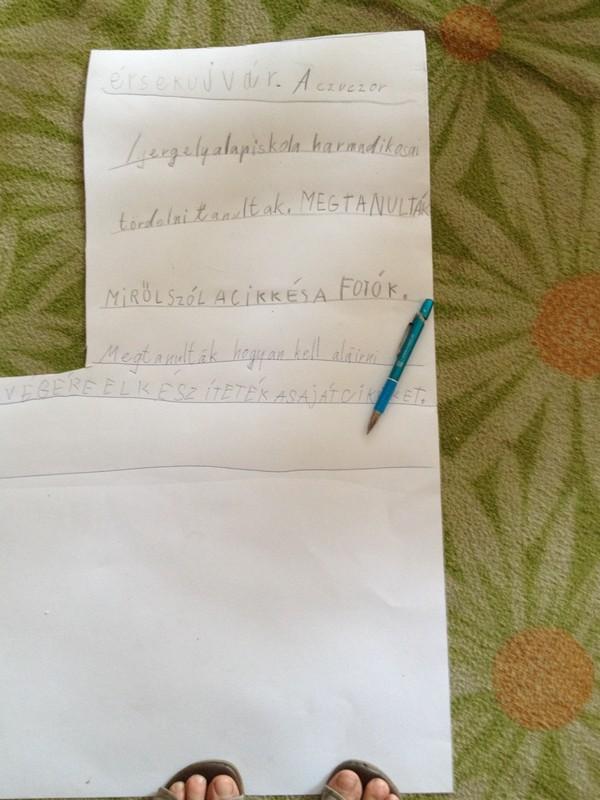 érsekújvár. A czuczor
Gergelyalapiskola harmadikosai
tördelni tanultak. MEGTANULTÁK
MiRÖLSZÓL ACIKKÉSA FOTÓK.
Megtanulták hogyan kell aláírni
VÉGÉRE ELKÉSZÍTETÉK ASAJÁTCIKKET.